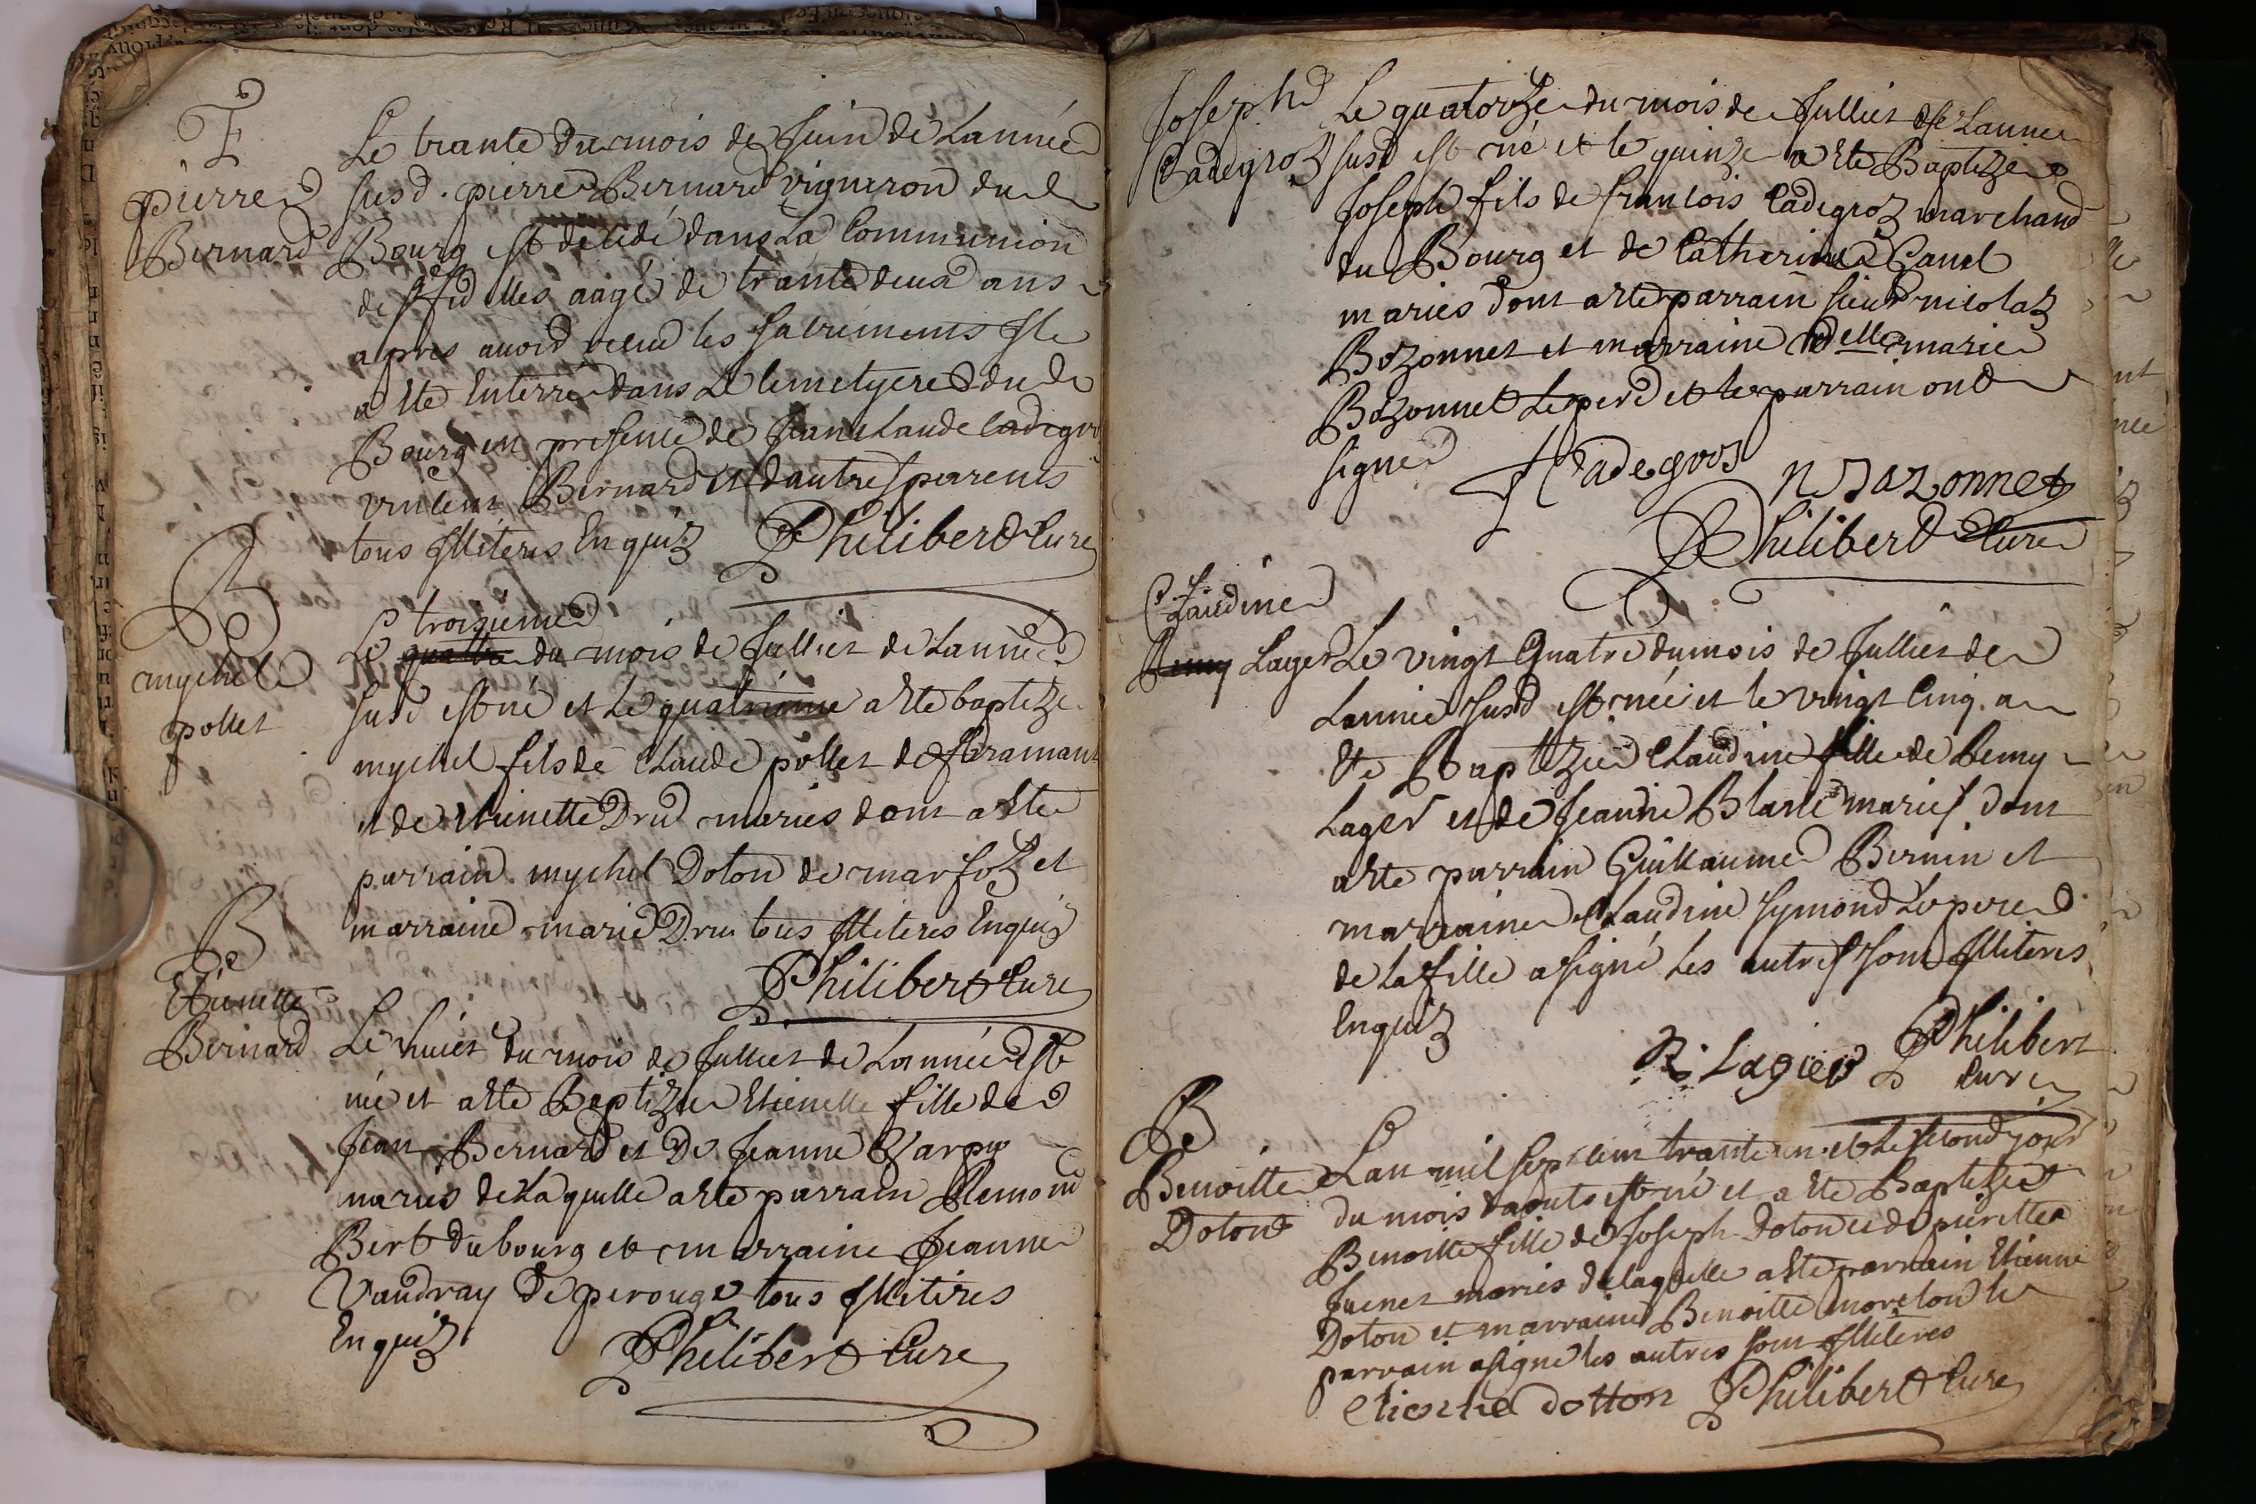 Pierre
Bernard
Le trante du mois de Juin de Lannée
susd. pierre Bernard vigneron dud
Bourg est décédé dans La Communion
de fidelles aagé de trante deux ans
apres avoir receu les sacrements Il
a Ete Enterré dans Le Cimetyere dud
Bourg en presence de Jean Claude Cadegro
vincent Bernard et dautres parents
tous Illiteres Enquiz Philibert Cure
B
mychel
pollet
troizieme
Le quatre du mois de Jullier de Lannée
susd est né et Le quatrieme a Ete baptize
mychel fils de Claude pollet de
et de Etienette Dru mariés dont a Ete
parrain mychel Doton de marfoz et
marraine marie Dru tous Illiteres Enquiz
Philibert Cure
B
Etienette
Bernard
Le huict du mois de Jullier de Lannée Est
né et a Ete Baptizée Etienette fille de
Jean Bernard et De Jeanne
mariés de Laquelle a Ete parrain Remond
Bert du bourg et marraine Jeanne
Vaudray de perouge tous Illiteres
Enquiz
Philibert Cure
Joseph
Cadegroz
Le quatorze du mois de Jullier de Lannee
susd est né et le quinze a Ete Baptize
Joseph fils de francois Cadegroz marchand
du Bourg et de Catherine Canel
mariés dont a Ete parrain sieur nicolaz
Bozonnet et marraine delle marie
Bozonnet Le pere et le parrain ont
signé
f Cadegroz N Bozonnet
Philibert Cure
Claudine
Remy Lager
Le vingt Quatre du mois de Jullier de
Lannée susd est née et le vingt Cinq a
Ete Baptizée Claudine fille de Remy
Lager et de Jeanne Blanc mariés dont
a Ete parrain Guillaume Bernin et
marraine Claudine Symond Le pere
de la fille a signé Les autres sont Illiteres
Enquiz
R. Lagier Philibert
Cure
B
Benoitte
Doton
Lan mil sept cent trante un et Le second jour
du mois daouts est né et a Ete Baptizée
Benoitte fille de Joseph Doton et de pierrette
Juenet mariés de laquelle a Ete parrain Etienne
Doton et marraine Benoitte moreton le
parrain a signé les autres sont Illiteres
etienne dotton Philibert Cure